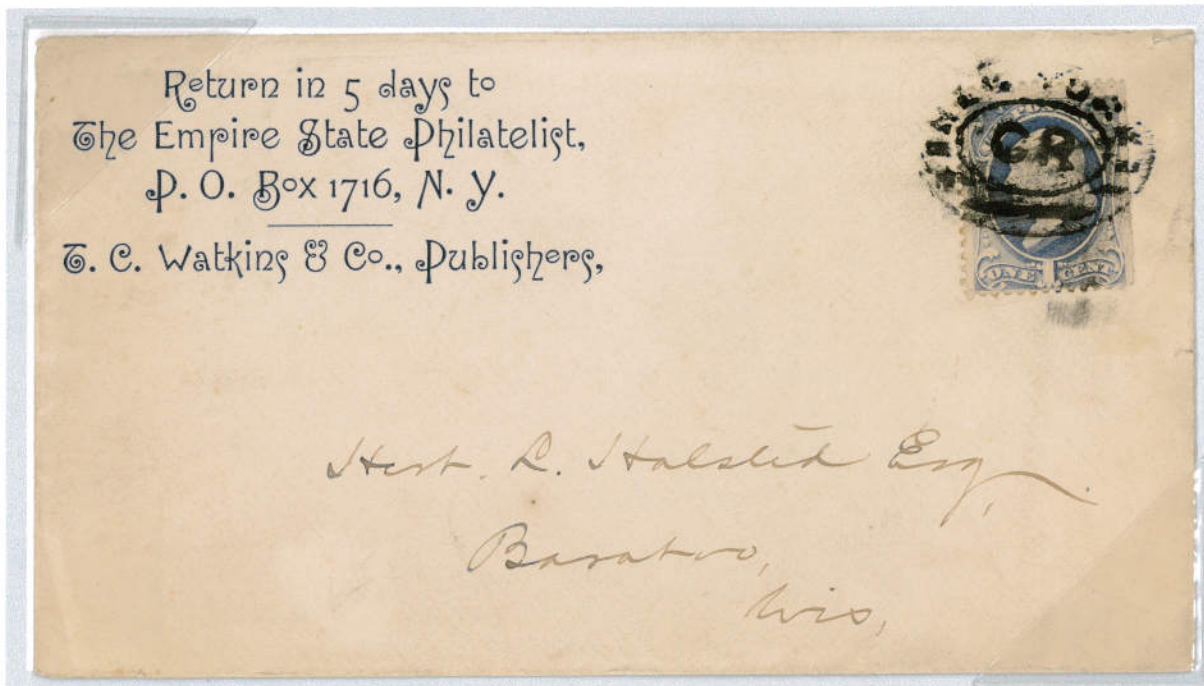 Return in 5 days to
The Empire State Philatelist,
P. O. Box 1716, N. Y.
T. C. Watkins & Co., Publishers,
CR
ONE CENT
Herb. L. Halsted Esq,
Baraboo,
Wis,